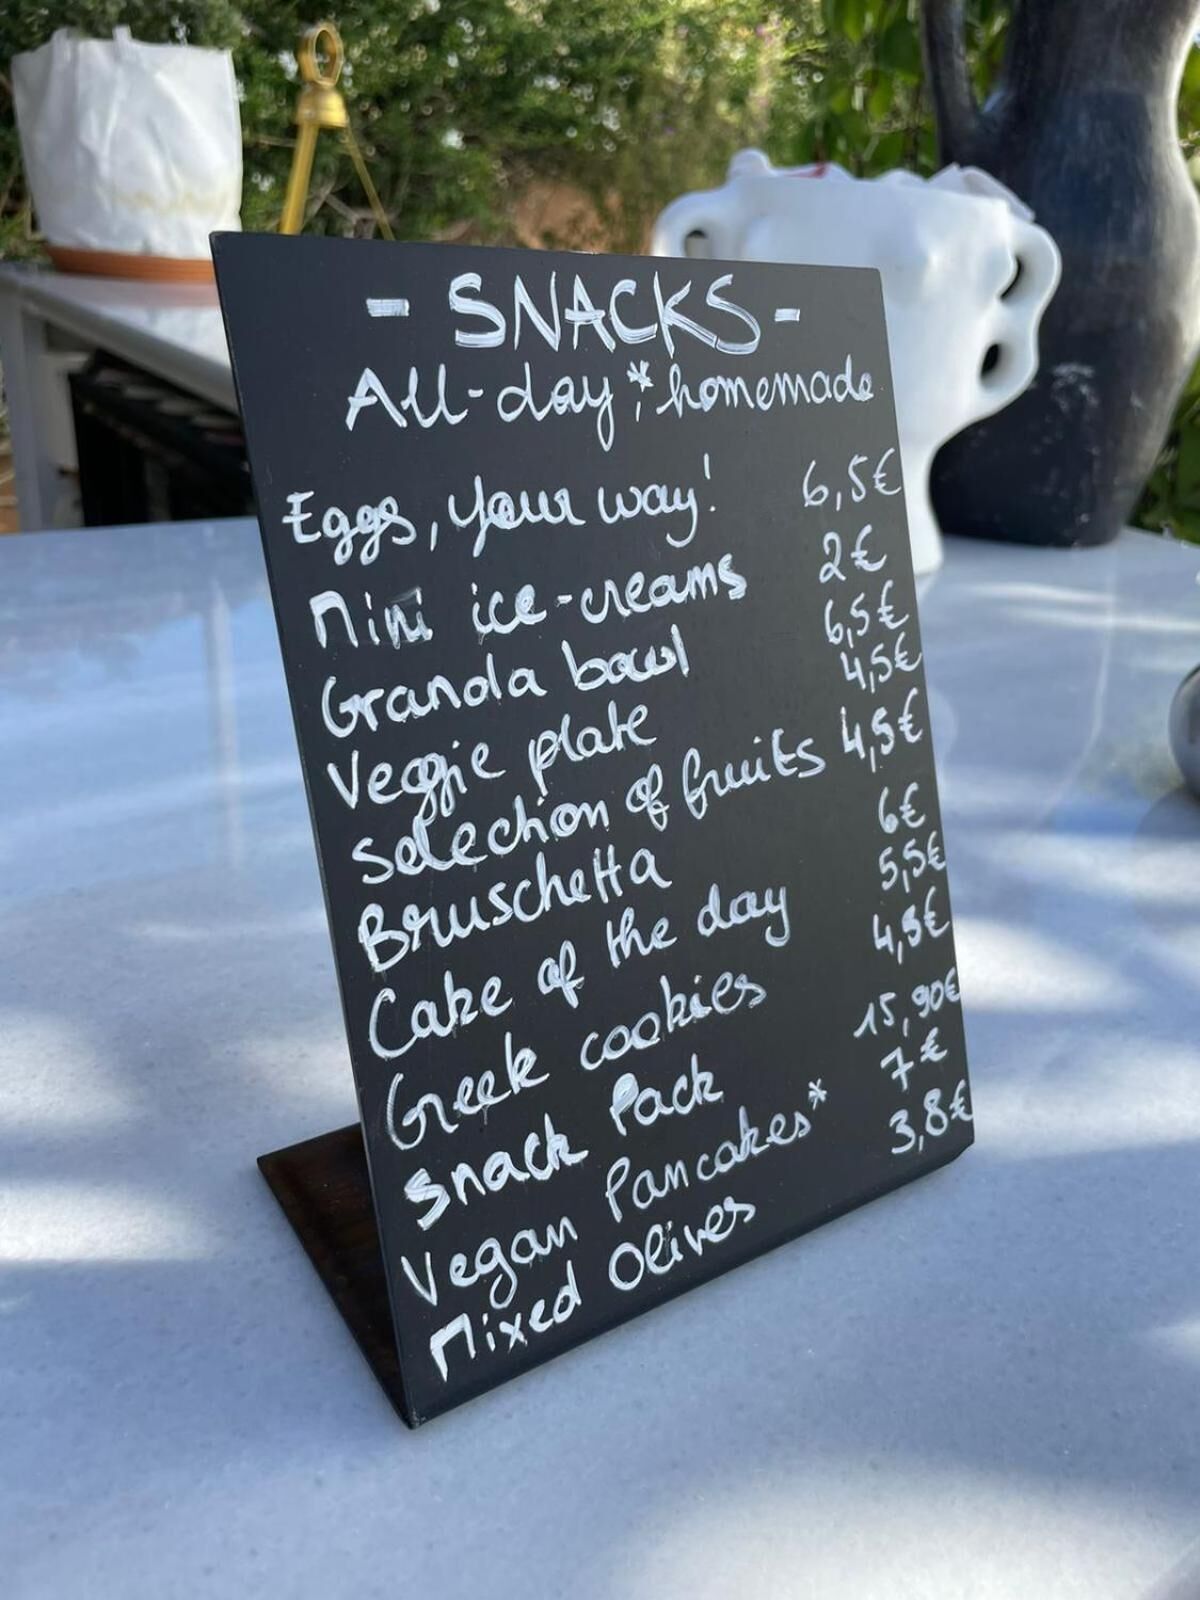 - SNACKS -
All-day * homemade
Eggs, your way! 6,5€
Mini ice-creams 2€
Granola bowl 6,5€
Veggie plate 4,5€
Selection of fruits 4,5€
Bruschetta 6€
Cake of the day 5,5€
Greek cookies 4,5€
Snack Pack 15,90€
Vegan Pancakes* 7€
Mixed Olives 3,8€